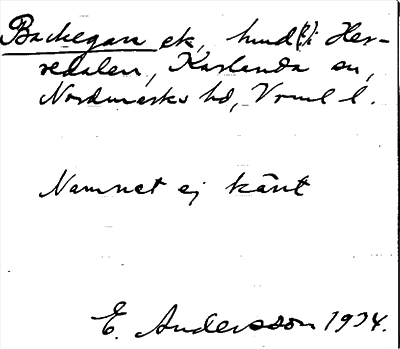 Backegan ek, hmd(?) i Her-
redalen, Karlanda sn,
Nordmarks hd, Vrml l.
Namnet ej känt
E. Andersson 1934.